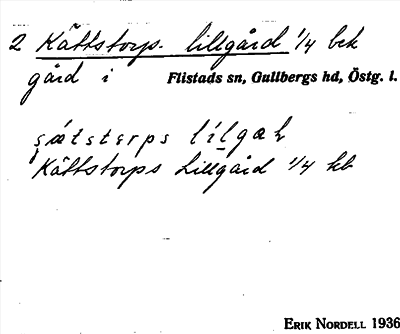 2 Kättstorps lillgård 1/4 bek
gård i Flistads sn, Gullbergs hd, Östg. l.
Kättstorps Lillgård 1/4 kb
ERIK NORDELL 1936